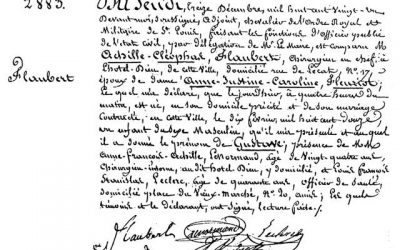 2885.
Du Jeudi, treize Décembre, mil huit cent vingt-un
Devant nous soussigné, Adjoint, Chevalier de l'Ordre Royal et
Militaire de St. Louis, faisant les fonctions d'Officier public
de l'état civil, par délégation de Mr. le Maire, est comparu Mr.
Flaubert
Achille-Cléophas, Flaubert, Chirurgien en chef à
l'hôtel-Dieu, de cette Ville, domicilié rue de Lecat, No. 17,
époux de dame Anne-Justine-Caroline, Fleuriot,
Lequel nous déclare, que le jour d'hier, à quatre heures du
matin, est né, en son domicile précité et de son mariage
Contracté, en cette Ville, le dix février, mil huit cent douze
un enfant du sexe Masculin, qu'il nous présente et auquel
il a donné le prénom de Gustave; présence de MM.
Anne-François-Achille, Lenormand, âgé de Vingt-quatre ans,
Chirurgien interne, audit hôtel Dieu, y domicilié et Louis François
Stanislas, Leclerc, âgé de quarante ans, officier de santé,
domicilié place du Vieux-Marché, No. 20, amis; lesquels
témoins et le déclarant, ont signé, lecture faite.
Flaubert Lenormand Leclerc